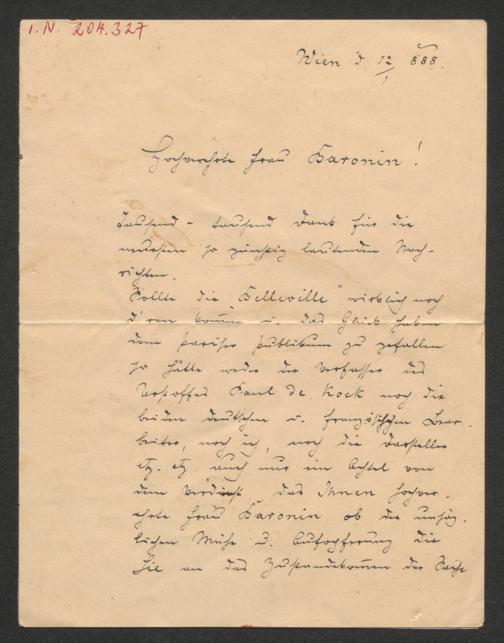 I.N. 204.327
Wien d. 12/1 888.
Hochverehrte Frau Baronin!
Tausend - tausend Dank für die
neuesten so günstig lautenden Nach-
richten.
Sollte die "Belleville" wirklich noch
d'ran kom̄en u. das Glück haben
dem pariser Publikum zu gefallen
so hätte weder der Verfasser des
Urstoffes Paul de Kock noch die
beiden deutschen u. französischen Bear-
beiter, noch ich, noch die Darsteller
etz. etz auch nur ein Achtel von
dem Verdienst das Ihnen hochver-
ehrte Frau Baronin ob der unsäg-
lichen Mühe u. Aufopferung die
Sie an das Zustandekom̄en der Sache